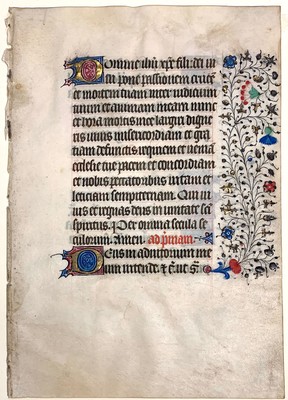 Domine ihu xpe fili dei vi
ui pone passionem crucē
et mortem tuam inter iudicium
tuum et animam meam nunc
et hora mortis mee largiri digne
ris viuis misericordiam et gra
tiam defunctis requiem et veniam
ecclesie tue pacem et concordiam
et nobis peccatoribus vitam et
leticiam sempiternam. Qui vi
uis et regnas deus in unitate sci
spiritus. Per omnia secula se
culorum. Amen. ad primam.
Deus in adiutorium me
um intende. et